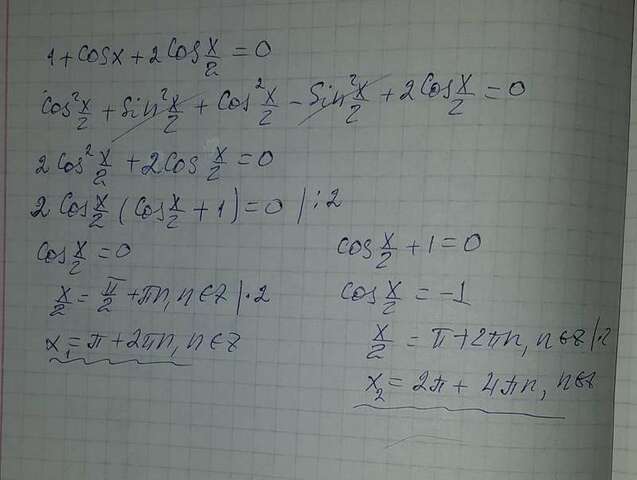 1 + cos x + 2 cos x/2 = 0
cos² x/2 + sin² x/2 + cos² x/2 − sin² x/2 + 2 cos x/2 = 0
2 cos² x/2 + 2 cos x/2 = 0
2 cos x/2 (cos x/2 + 1) = 0 | : 2
cos x/2 = 0
x/2 = π/2 + πn, n ∈ z | · 2
x₁ = π + 2πn, n ∈ z
cos x/2 + 1 = 0
cos x/2 = −1
x/2 = π + 2πn, n ∈ z | · 2
x₂ = 2π + 4πn, n ∈ z